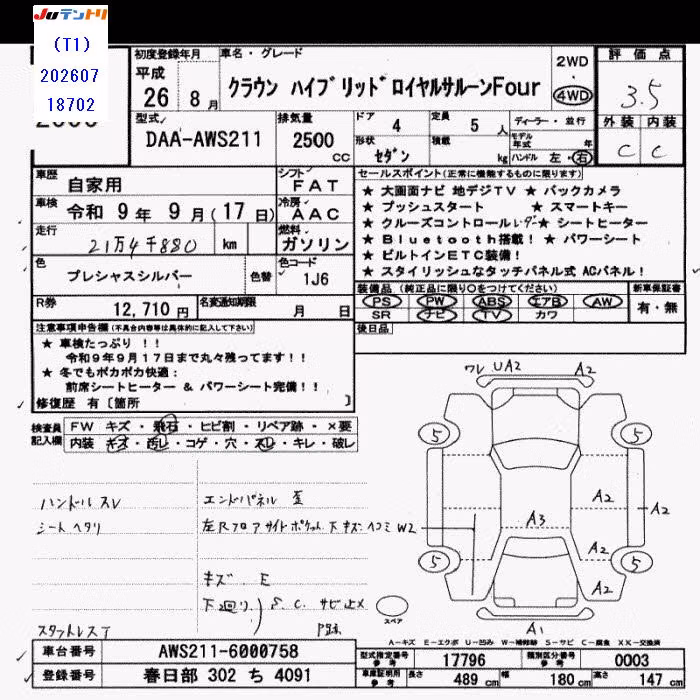 JUテントリ
(T1)
202607
18702
初度登録年月
平成
26 8月
車名・グレード
クラウン ハイブリッドロイヤルサルーンFour
2WD
・
4WD
評価点
3.5
外装 内装
C C
型式
DAA-AWS211
排気量
2500
cc
ドア
4
定員
5 人
ディーラー・並行
形状
セダン
積載
kg
モデル年式
年
ハンドル 左・右
車歴
自家用
シフト
FAT
車検
令和 9年 9月(17日)
冷房
AAC
走行
21万4千880 km
燃料
ガソリン
色
プレシャスシルバー
色替
色コード
1J6
R券
12,710円
名変通知期限
月 日
セールスポイント(正常に機能するものに限ります)
★ 大画面ナビ 地デジTV ★ バックカメラ
★ プッシュスタート ★ スマートキー
★ クルーズコントロールレーダー ★ シートヒーター
★ Bluetooth搭載! ★ パワーシート
★ ビルトインETC装備!
★ スタイリッシュなタッチパネル式 ACパネル!
装備品(純正品に限り○をつけてください)
PS PW ABS エアB AW
SR ナビ TV カワ
新車保証書
有・無
後日品
注意事項申告欄(不具合内容等は具体的に記入して下さい)
★ 車検たっぷり !!
令和9年9月17日まで丸々残ってます!!
★ 冬でもポカポカ快適:
前席シートヒーター & パワーシート完備!!
修復歴 有〔箇所 〕
検査員記入欄
FW キズ・飛石・ヒビ割・リペア跡・×要
内装 キズ・汚レ・コゲ・穴・スレ・キレ・破レ
ハンドル スレ
シート ヘタリ
エンドパネル 歪
左Rフロア サイドポケット 下キズ ヘコミ
キズ、E
下廻り) S、C、サビ止メ
スタットレス
ワレ UA2
A2
5
5
A2
A2
W2
A3
A2
5
5
A2
A1
スペア
A-キズ E-エクボ U-凹み W-補修跡 S-サビ C-腐食 XX-交換済
車台番号
AWS211-6000758
登録番号
春日部 302 ち 4091
型式指定番号
参考
17796
類別区分番号
参考
0003
車庫証明用
参考
長さ 489 cm
幅 180 cm
高さ 147 cm